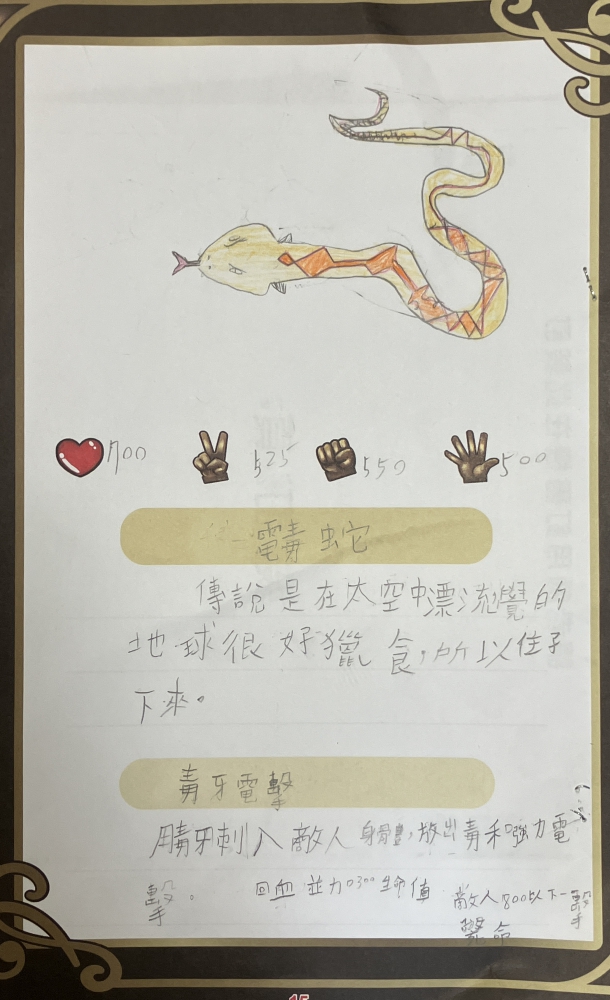 700 525 550 500
電毒蛇
傳說是在太空中漂流覺的
地球很好獵食，所以住了
下來。
毒牙電擊
用毒牙刺入敵人身體，放出毒和強力電
擊。 回血並加300生命值 敵人800以下一擊
斃命
15